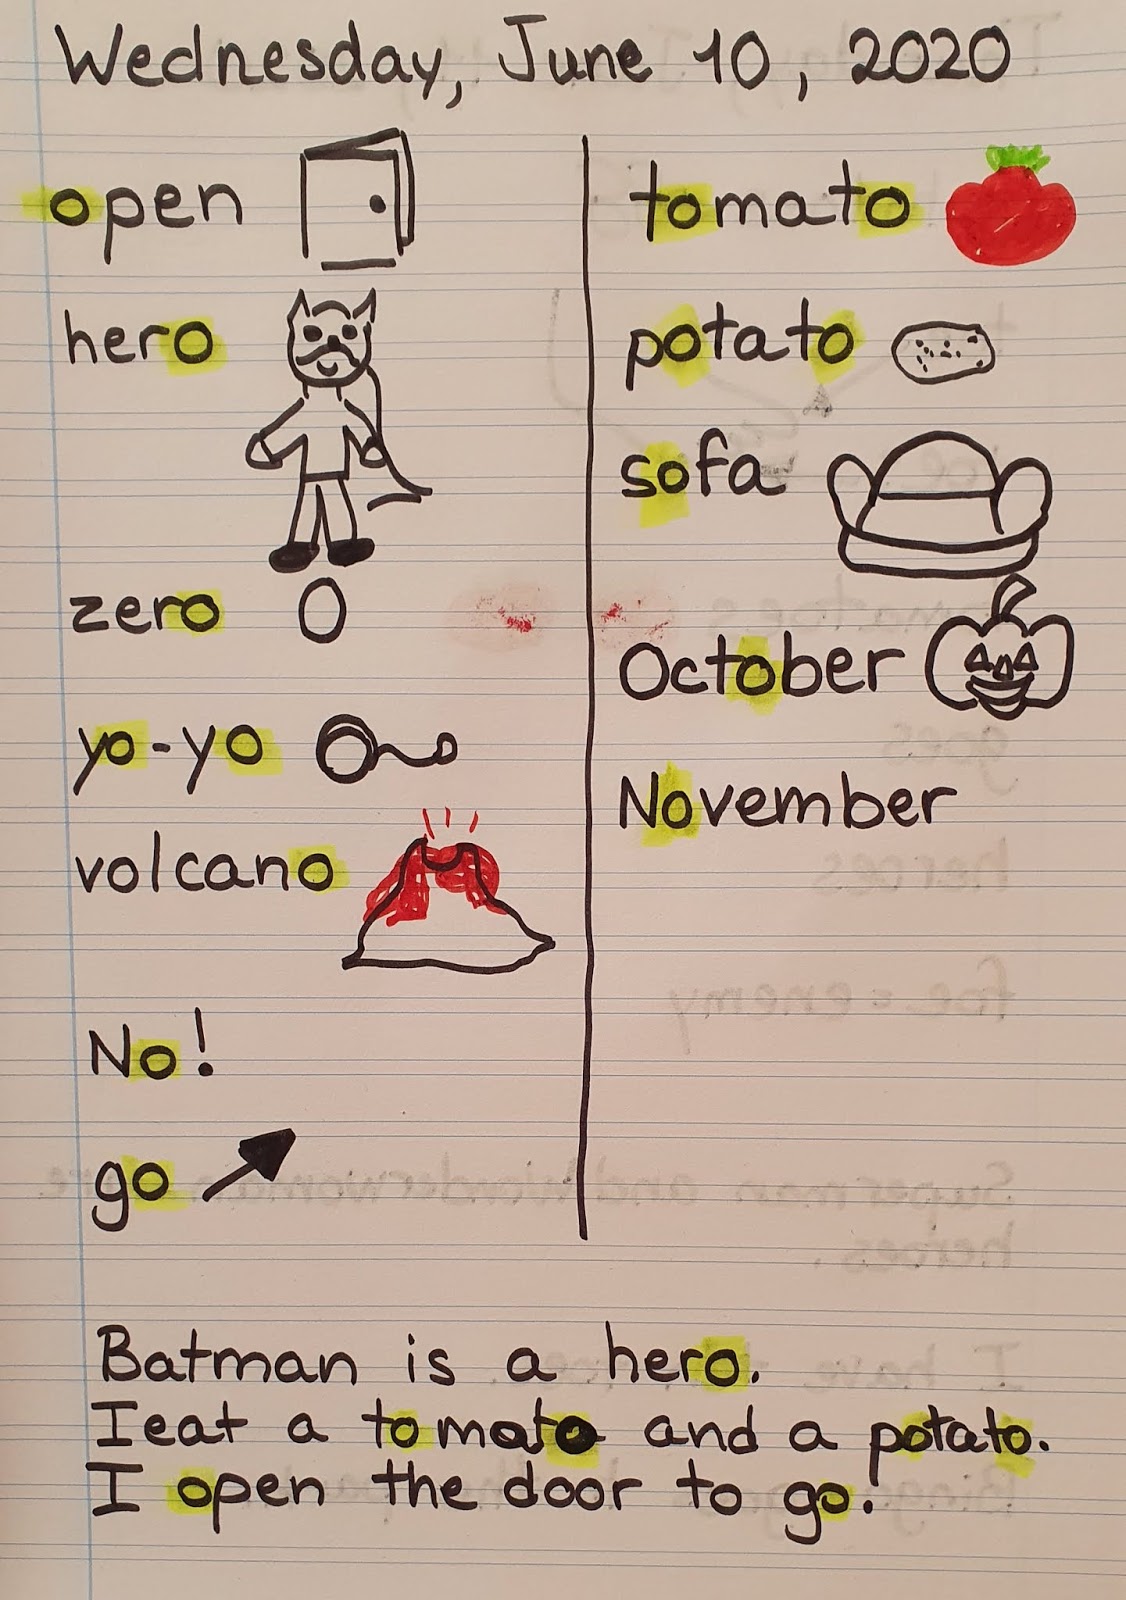 Wednesday, June 10, 2020
open
hero
zero 0
yo-yo
volcano
No!
go
tomato
potato
sofa
October
November
Batman is a hero.
I eat a tomato and a potato.
I open the door to go!